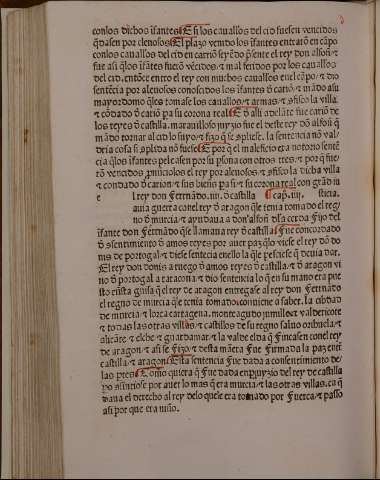 conlos dichos ifantes. E si los cauallos del cid fuesen vencidos
q̃dasen por aleuosos. El plazo venido los ifantes entratõ en cãpo
conlos cauallos del cid en carriõ seyẽdo p̃sente el rey don alfõn. ⁊
fue asi q̃los ifãtes fuerõ vẽcidos ⁊ mal feridos por los cauallos
del cid. entõce entro el rey con muchos cauallos enel cãpo. ⁊ dio
sentẽcia por aleuosos conoscidos los ifantes de cariõ. ⁊ mãdo asu
mayordomo q̃les tomase los cauallos ⁊ armas. ⁊ cõfisco la villa
⁊ cõdado de cariõ pa su corona real. E de alli adelãte fue cariõ de
los reyes de castilla. marauilloso juyzio fue el deste rey dõ alfõn q̃
mãdo tornar al cid lo suyo. ⁊ fizo q̃ se cõpliese. la sentencia nõ val-
dria cosa si cõplida nõ fuese. E por q̃ el maleficio era notorio sentẽ
cia q̃los ifantes peleasen por su p̃sona con otros tres. ⁊ por q̃ fue-
rõ vencidos pnũciolos el rey por aleuosos. ⁊ cõfisco la dicha villa
⁊ condado de carion ⁊ sus bienes pa si ⁊ su corona real con grãd iu
e l rey don Fernãdo .iiii. de castilla cap̃. iiij. sticia.
auia guerra conel rey de aragon q̃le tenia tomado el reg/
no de murcia ⁊ ayudaua a don alfon dela cerda fijo del
ifante don Fernãdo q̃se llamaua rey de castilla. fue concordado
de cõsentimiento de amos reyes por auer paz q̃lo viese el rey dõ do
nis de portogal ⁊ diese sentecia enello la q̃le pesciese q̃ deuia dar.
El rey don donis a ruego de amos reyes de castilla. ⁊ de aragon vi
no de portogal a taracona ⁊ dio sentencia lo q̃ en su mano era pue
sto enesta guisa q̃ el rey de aragon entregase al rey don Fernãdo
el regno de murcia q̃le tenia tomado. conviene a saber. la cibdad
de murcia ⁊ lorca cartagena. monteagudo ⁊ valdericote
⁊ todas las otras villas ⁊ castillos de su regno saluo orihuela ⁊
alicãte ⁊ elche ⁊ guardamar ⁊ la valde elda q̃ fincasen conel rey
de aragon. ⁊ asi se fizo. ⁊ desta mãera fue firmada la paz entre
castilla ⁊ aragon. Esta sentencia fue dada a consentimiento de/
las ptes. Como quiera q̃ fue dada en piuyzio del rey de castilla
por auer lo mas q̃ era murcia ⁊ las otras villas. en q̃
daua el derecho al rey delo quele era tomado por fuerca. ⁊ paso
asi por que era niño.